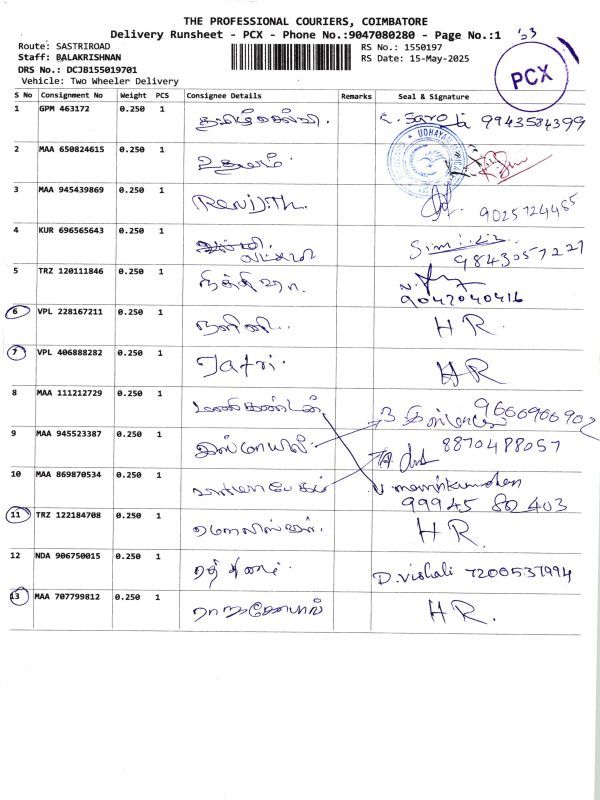 THE PROFESSIONAL COURIERS, COIMBATORE
Delivery Runsheet - PCX - Phone No.:9047080280 - Page No.:1
Route: SASTRIROAD
Staff: BALAKRISHNAN
DRS No.: DCJB155019701
Vehicle: Two Wheeler Delivery
RS No.: 1550197
RS Date: 15-May-2025
PCX
S No Consignment No Weight PCS Consignee Details Remarks Seal & Signature
1 GPM 463172 0.250 1 தமிழ்செல்வி. 9943584399
2 MAA 650824615 0.250 1
3 MAA 945439869 0.250 1 Renjith. 9025724485
4 KUR 696565643 0.250 1 9843057227
5 TRZ 120111846 0.250 1 நித்திஷா. 9047040416
6 VPL 228167211 0.250 1 நளினி.. HR.
7 VPL 406888282 0.250 1 Jafri. HR
8 MAA 111212729 0.250 1 மணிகண்டன் 9666906902
9 MAA 945523387 0.250 1 இஸ்மாயில். 8870488057
10 MAA 869870534 0.250 1 99945 80 403
11 TRZ 122184708 0.250 1 HR.
12 NDA 906750015 0.250 1 D. Vishali 7200537994
13 MAA 707799812 0.250 1 ராஜகோபால் HR.